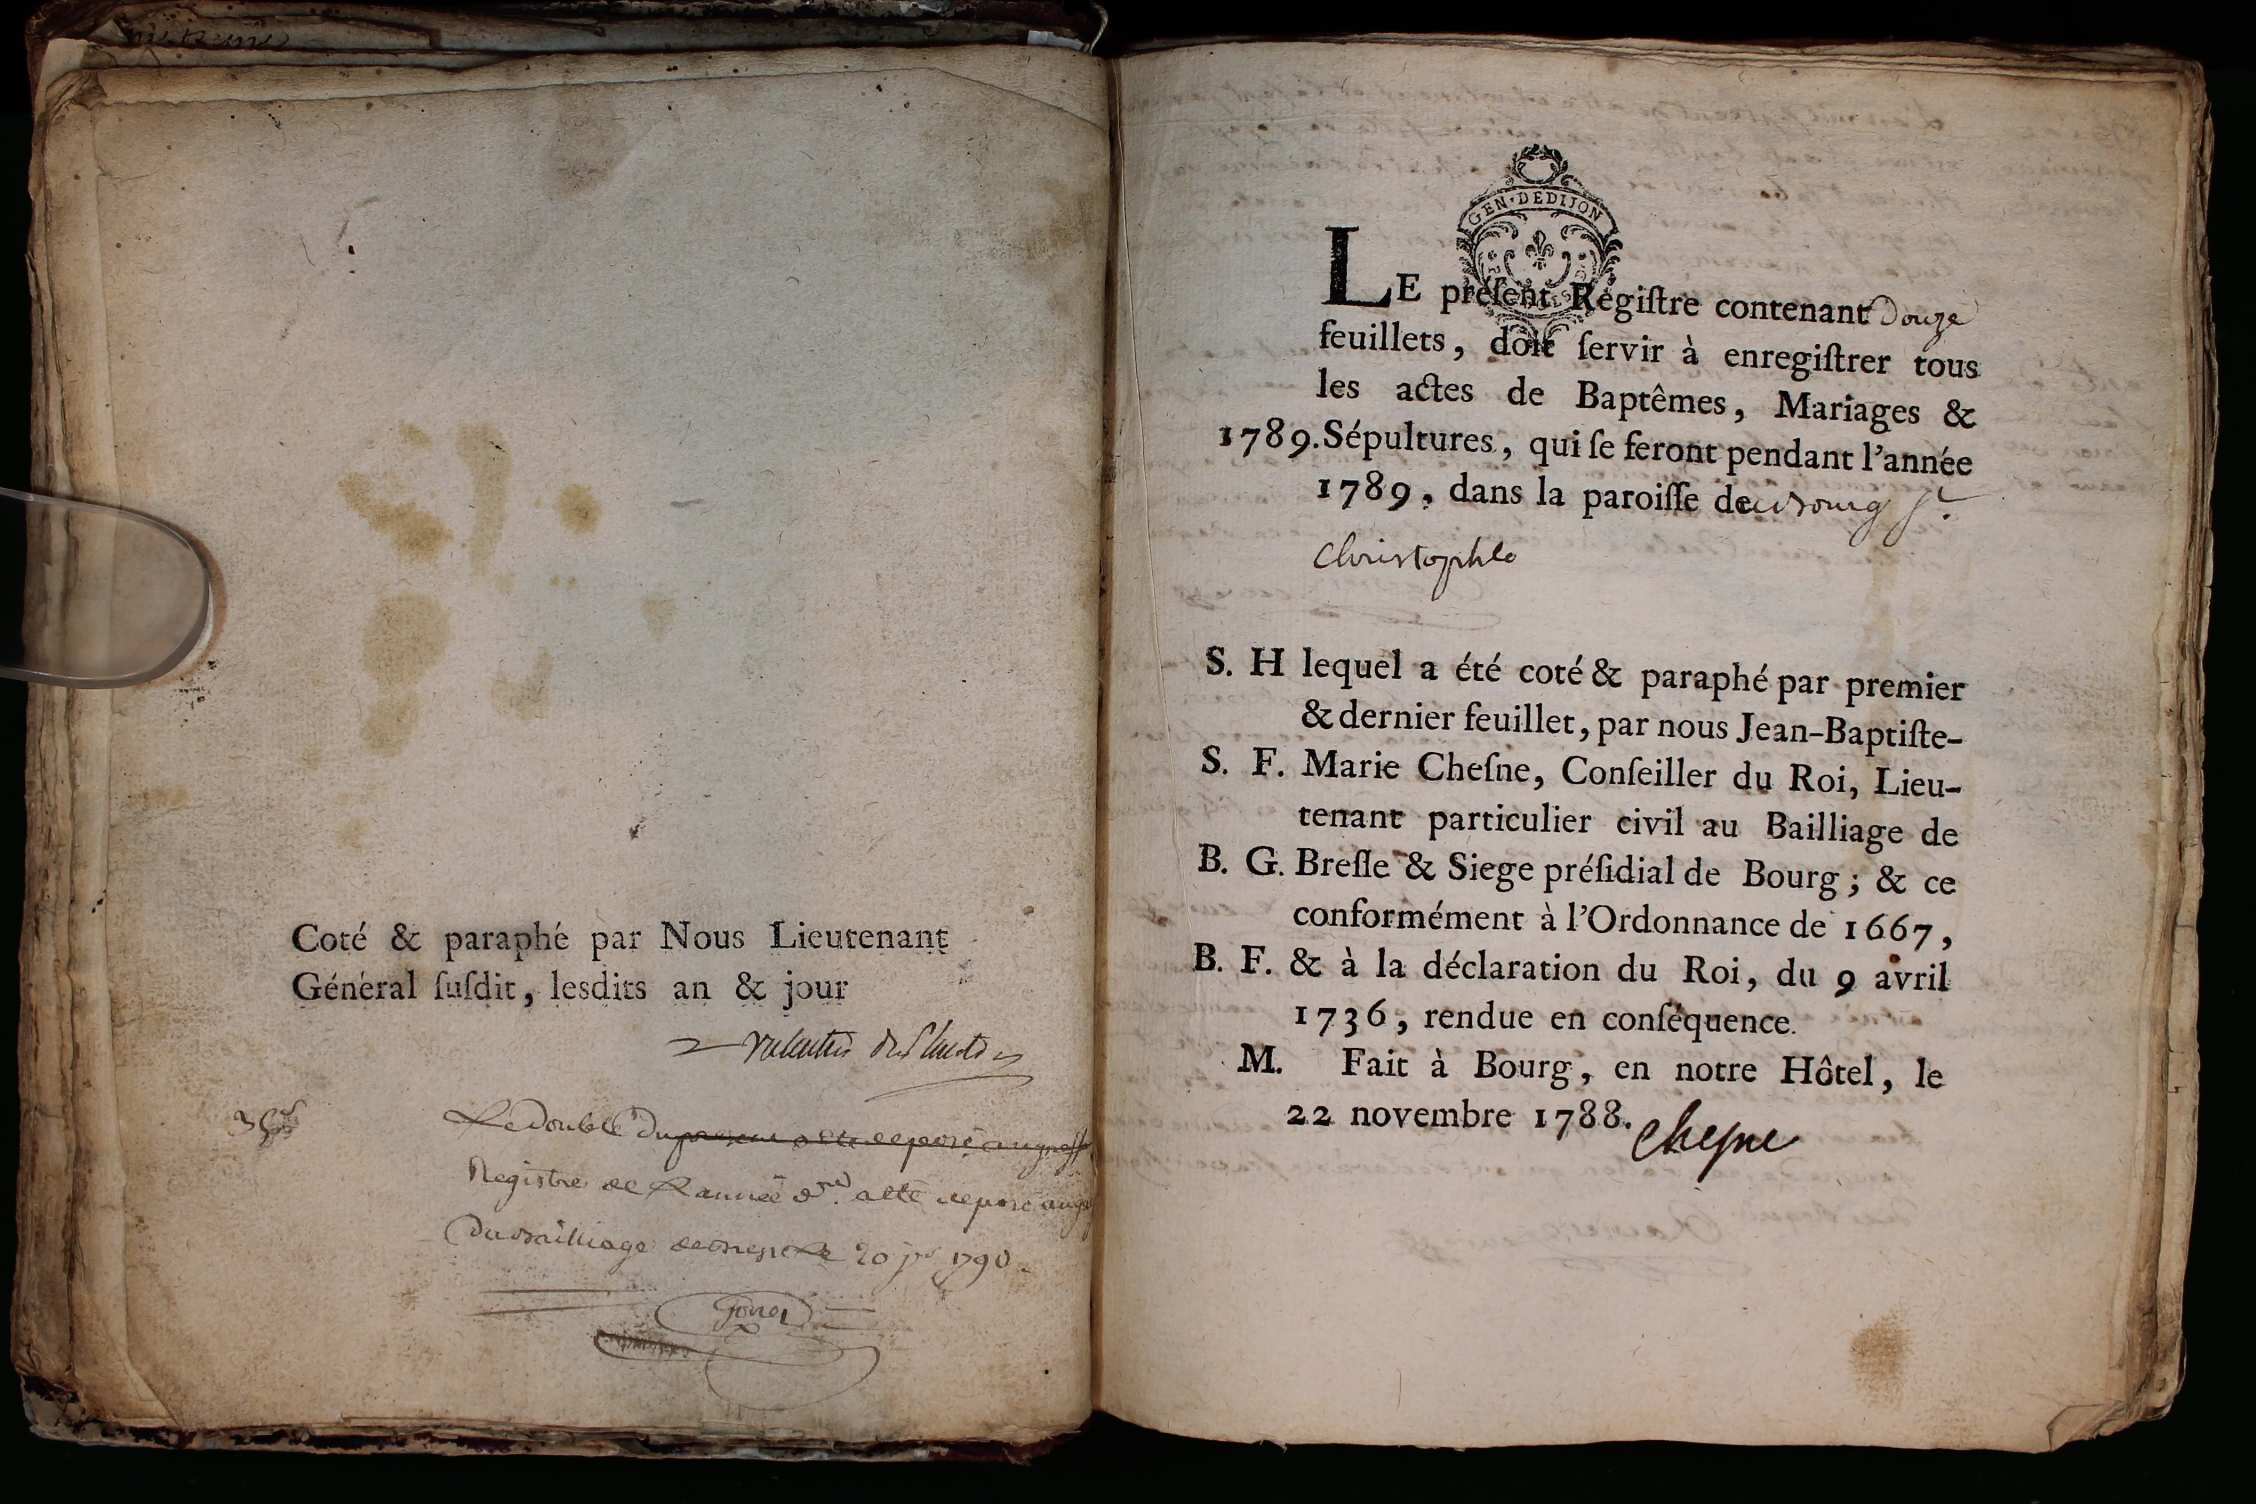 Coté & paraphé par Nous Lieutenant
Général ſuſdit, lesdits an & jour
Le double du
Registre de L'année d.re a eté deposé au
Du Bailliage de Bresse Le 20 1790
GEN·DEDIJON
LE préſent Regiſtre contenant Douze
feuillets, doit ſervir à enregiſtrer tous
les actes de Baptêmes, Mariages &
1789. Sépultures, qui ſe feront pendant l'année
1789, dans la paroiſſe de Bourg St.
Christophle
S. H lequel a été coté & paraphé par premier
& dernier feuillet, par nous Jean-Baptiſte-
S. F. Marie Cheſne, Conſeiller du Roi, Lieu-
tenant particulier civil au Bailliage de
B. G. Breſſe & Siege préſidial de Bourg; & ce
conformément à l'Ordonnance de 1667,
B. F. & à la déclaration du Roi, du 9 avril
1736, rendue en conſéquence.
M. Fait à Bourg, en notre Hôtel, le
22 novembre 1788.
Chesne